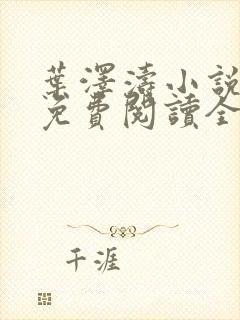 葉澤濤小說
免費閱讀全
千涯